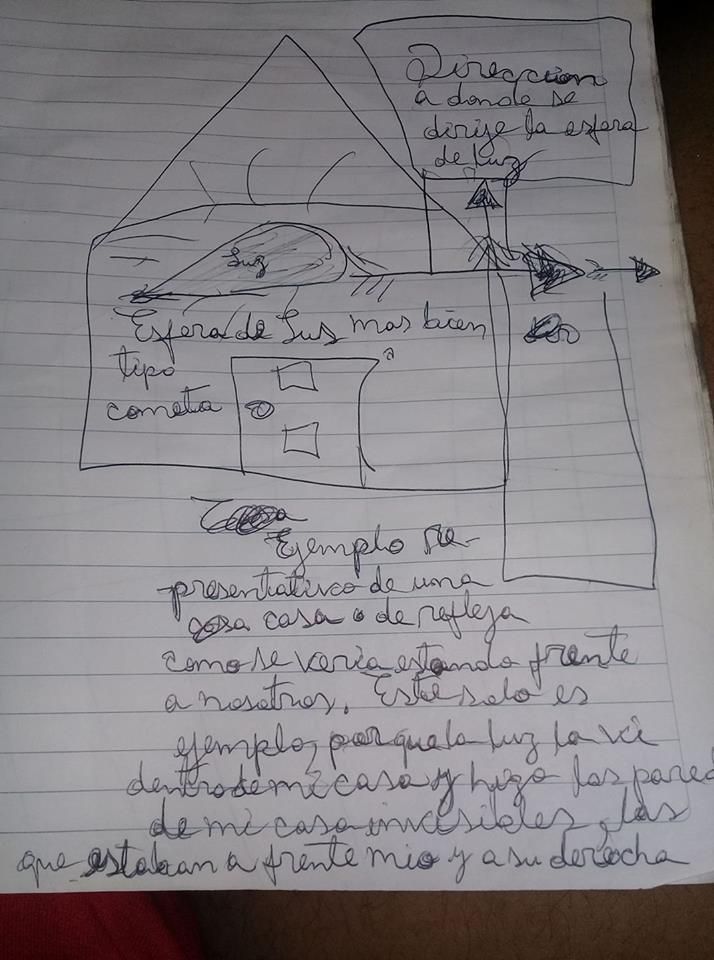 Direccion
a donde se
dirije la esfera
de luz
Luz
Esfera de Lus mas bien
tipo
cometa
Ejemplo Re-
presentativo de una
casa o de refleja
como se veria estando frente
a nosotros. Este solo es
ejemplo, porque la luz la vi
dentro de mi casa y hizo las pared
de mi casa invisibles, las
que estaban a frente mio y a su derecha